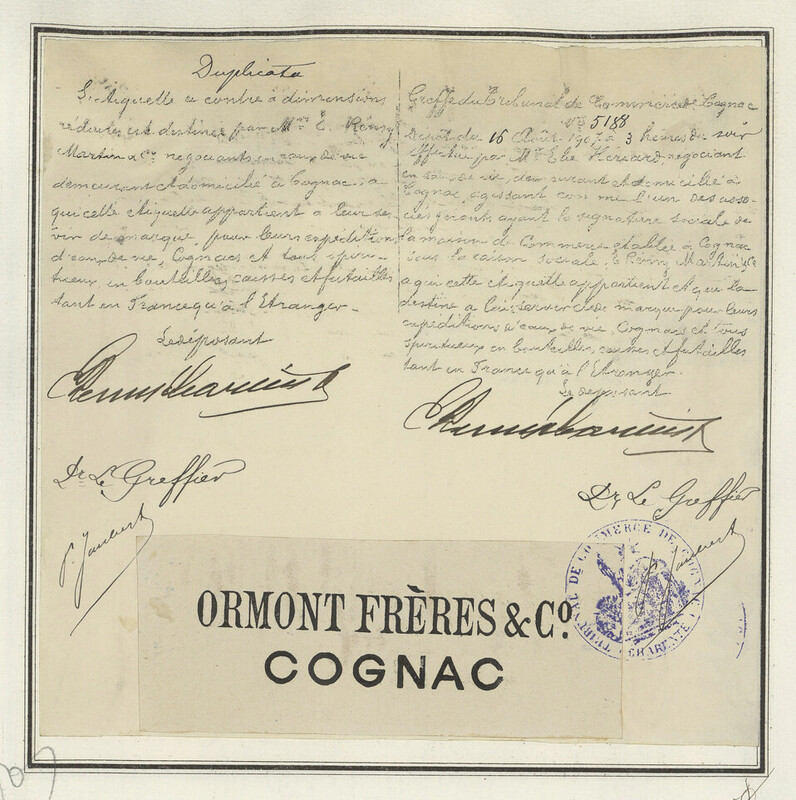 Duplicata
L'étiquette ci contre à dimensions
réduites est destinée par Mrs E. Rémy
Martin & Co négociants en eaux de vie
demeurant et domicilié à Cognac, a
qui cette étiquette appartient a leur ser
vir de marque pour leurs expéditions
d'eaux de vie, Cognacs et tous spiri-
tueux, en bouteilles, caisses et futailles
tant en France qu'à l'Etranger.
Le déposant
E Remy Martin & Co
Dr Le Greffier
Greffe du Tribunal de Commerce de Cognac
No 5188
Dépôt du 16 Août à 3 heures du soir
effectué par Mr Elie négociant
en eau de vie, demeurant et domicilié à
Cognac, agissant comme l'un des asso-
ciés gérants, ayant la signature sociale de
la maison de Commerce établie à Cognac
sous la raison sociale, E Rémy Martin & Co
a qui cette étiquette appartient et qui la
destine a leur servir de marque pour leurs
expéditions d'eaux de vie, Cognacs et tous
spiritueux en bouteilles, caisses et futailles
tant en France qu'à l'Etranger.
Le déposant
E Remy Martin & Co
Dr Le Greffier
TRIBUNAL DE COMMERCE DE COGNAC
CHARENTE
ORMONT FRÈRES & Co.
COGNAC